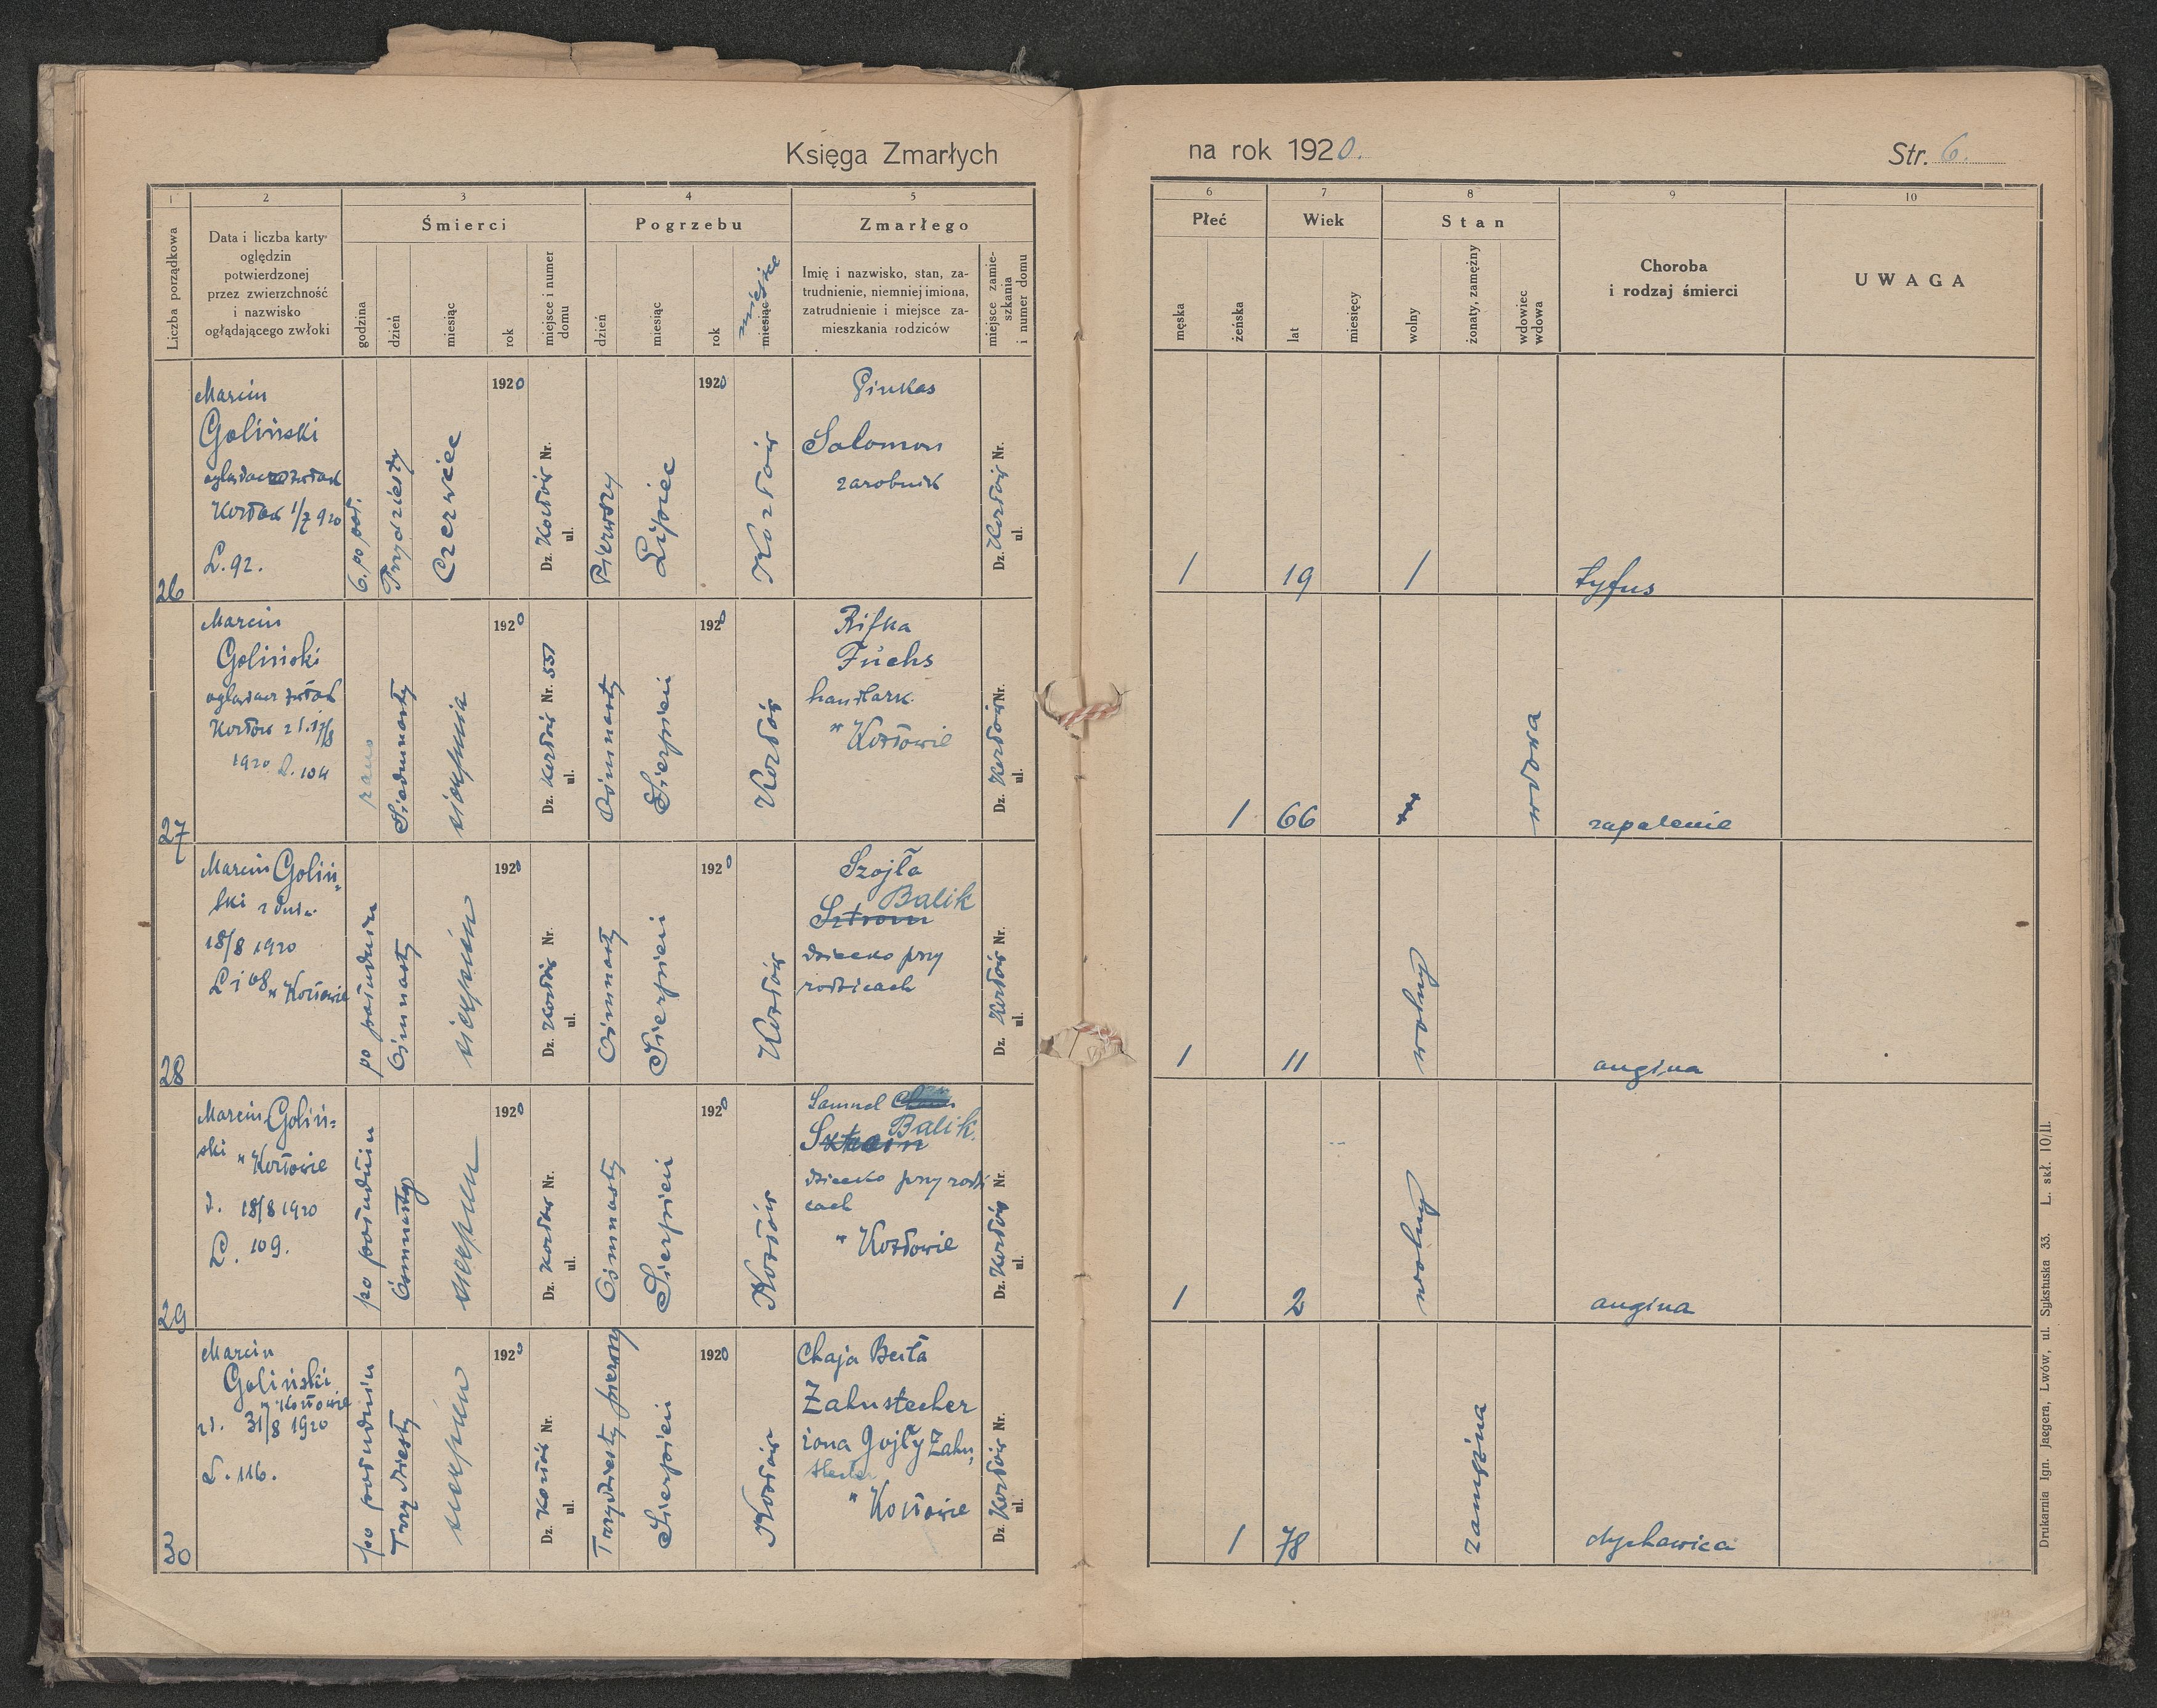 Księga Zmarłych
na rok 1920.
Str. 6.
1
2
3
4
5
6
7
8
9
10
Liczba porządkowa
Data i liczba karty
oględzin
potwierdzonej
przez zwierzchność
i nazwisko
oglądającego zwłoki
Śmierci
godzina
dzień
miesiąc
rok
miejsce i numer
domu
Pogrzebu
dzień
miesiąc
rok
miesiąc
miejsce
Zmarłego
Imię i nazwisko, stan, za-
trudnienie, niemniej imiona,
zatrudnienie i miejsce za-
mieszkania rodziców
miejsce zamie-
szkania
i numer domu
Płeć
męska
żeńska
Wiek
lat
miesięcy
Stan
wolny
żonaty, zamężny
wdowiec
wdowa
Choroba
i rodzaj śmierci
UWAGA
26
Marcin
Goliński
Kozłow 1/7 920
L. 92.
6. po poł.
Trydziesty
Czerwiec
1920
Dz. Kozłów Nr.
ul.
Pierwszy
Lipiec
1920
Kozłów
Pinkas
Salomon
zarobnik
Dz. Kozłów Nr.
ul.
1
19
1
tyfus
27
Marcin
Goliński
oglądacz zwłok
Kozłow z d. 17/8
1920 L. 104
rano
Siedmnasty
sierpnia
1920
Dz. Kozłów Nr. 551
ul.
Ósmnasty
Sierpień
1920
Kozłów
Rifka
Fuchs
handlark.
w Kozłowie
Dz. Kozłów Nr.
ul.
1
66
wdowa
zapalenie
28
Marcin Goliń-
ski z dnia
18/8 1920
L 108 w Kozłowie
po południu
Ósmnasty
sierpień
1920
Dz. Kozłów Nr.
ul.
Ósmnasty
Sierpień
1920
Kozłów
Szojła
Balik
Sztrom
dziecko przy
rodzicach
Dz. Kozłów Nr.
ul.
1
11
wolny
angina
29
Marcin Goliń-
ski w Kozłowie
d. 18/8 1920
L. 109.
po południu
Ósmnasty
sierpień
1920
Dz. Kozłów Nr.
ul.
Ósmnasty
Sierpień
1920
Kozłów
Samuel
Balik.
dziecko przy rodzi
cach
w Kozłowie
Dz. Kozłów Nr.
ul.
1
2
wolny
angina
30
Marcin
Goliński
w Kozłowie
d. 31/8 1920
L. 116.
po południu
Trzydziesty
sierpień
1920
Dz. Kozłów Nr.
ul.
Trzydziesty pierwszy
Sierpień
1920
Kozłów
Chaja Beiła
Zahnstecher
żona Jojły Zahn-
stecher
w Kozłowie
Dz. Kozłów Nr.
ul.
1
78
zamężna
dychawica
Drukarnia Ign. Jaegera, Lwów, ul. Sykstuska 33. L. skł. 10/II.